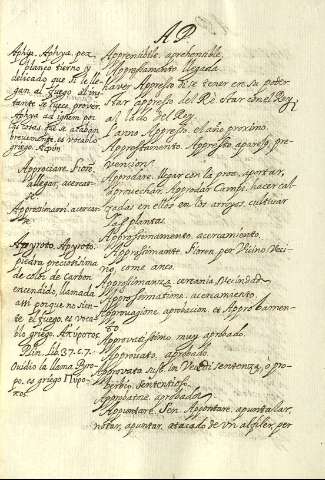 AP.
Aphya. Aphya. pez
blanco tierno y
delicado que si le lle-
gan al fuego al ins-
tante se cuece, prover.
Aphya ad ignem por
las cosas que se acaban
brevemente, es vocablo
griego
Appreciare. Fior.
allegar, acercar
Approsimarsi. acercar
se.
Apyroto. Apyroto.
piedra preciosissima
de color de Carbon
encendido, llamada
assi porque no sien-
te el fuego, es voca-
blo griego. Απυροτος
Plin. lib. 37. c. 7.
Ovidio la llama Pyro-
po, es griego Πυρω-
πος.
Apprendibile. aprehensible
Appressamento. llegada
haver Appresso di se. tener en su poder
Star appresso del Re. Star con el Rey,
al lado del Rey.
l'anno Appresso. el año proximo.
Apprestamento. Appresto. aparejo, pre-
vencion.
Approdare. llegar con la proa, aportar,
aprovechar. Approdar Campi. hacer cal-
zadas en ellos en los arroyos, cultivar
las plantas.
Approssimamento. acercamiento.
Approssimante. Fioren. per Vicino. Veci-
no, cercano.
Approssimanza. cercania, Vecindad
Approssimatione. acercamiento
Approvagione. aprobacion, et Approbamen-
to
Approvatissimo. muy aprobado.
Approvato. aprobado.
Approvato sust. in Ven.
Appuntare. Sen. Appontare. apuntalar,
notar, apuntar, atacado de un alfiler, per